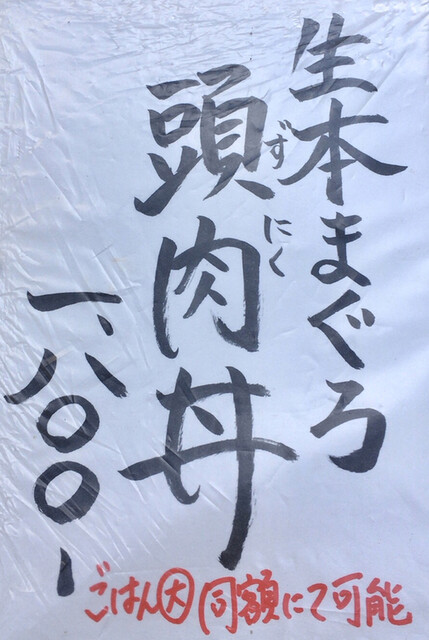 生本まぐろ
頭肉丼
ずにく
一、八〇〇-
ごはん大同額にて可能